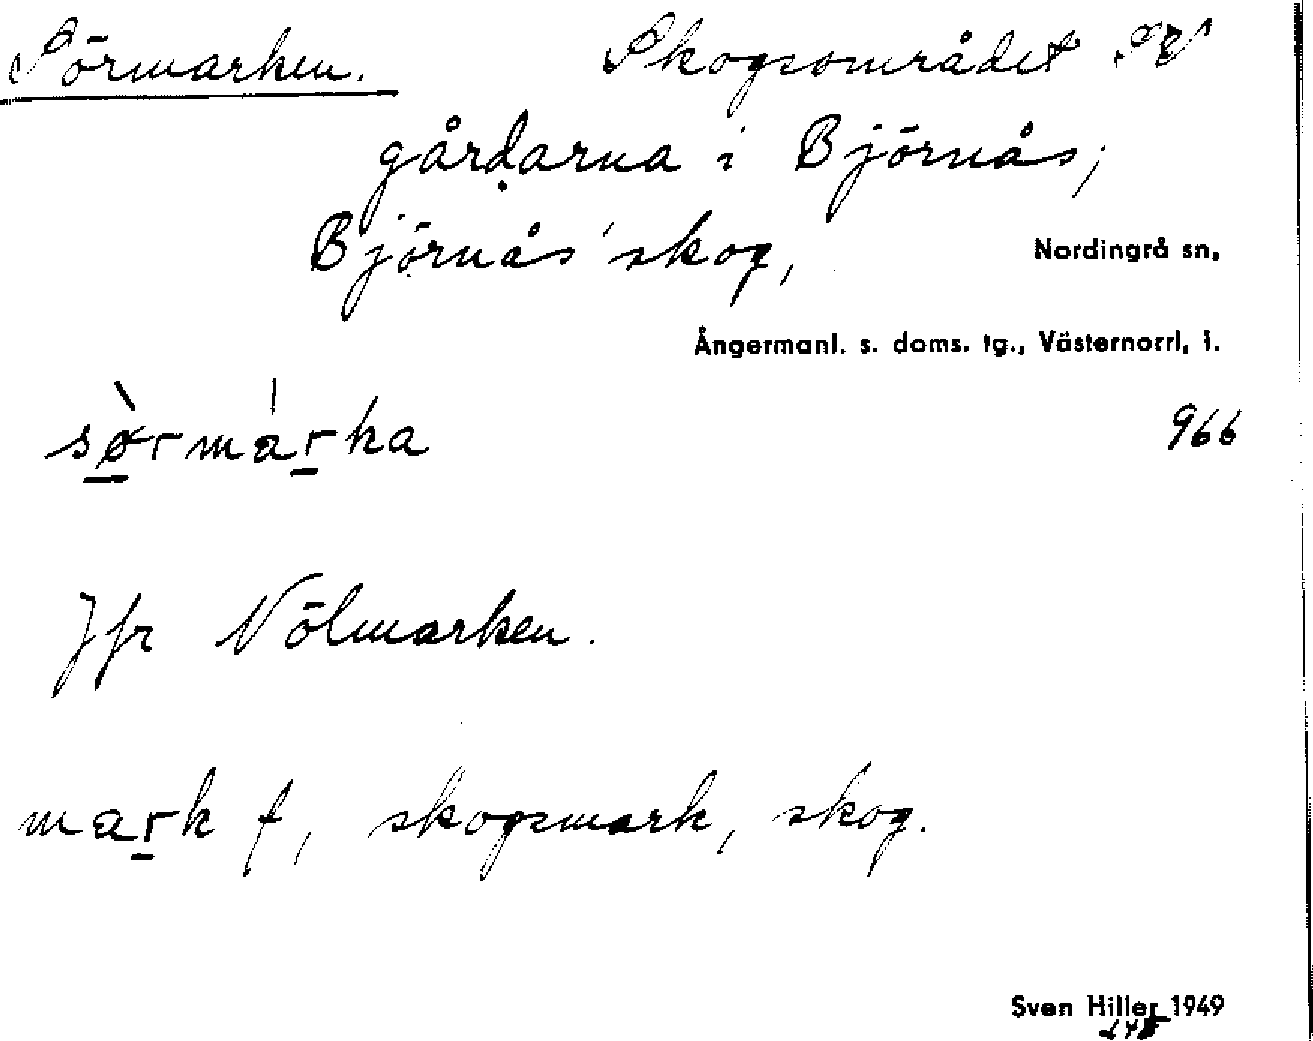 Sörmarken. Skogsområdet SV
gårdarna i Björnås;
Björnås skog,
Nordingrå sn,
Ångermanl. s. doms. tg., Västernorrl, l.
sø̀rmárka
966
Jfr Nölmarken.
mark f, skogsmark, skog.
Sven Hiller 1949